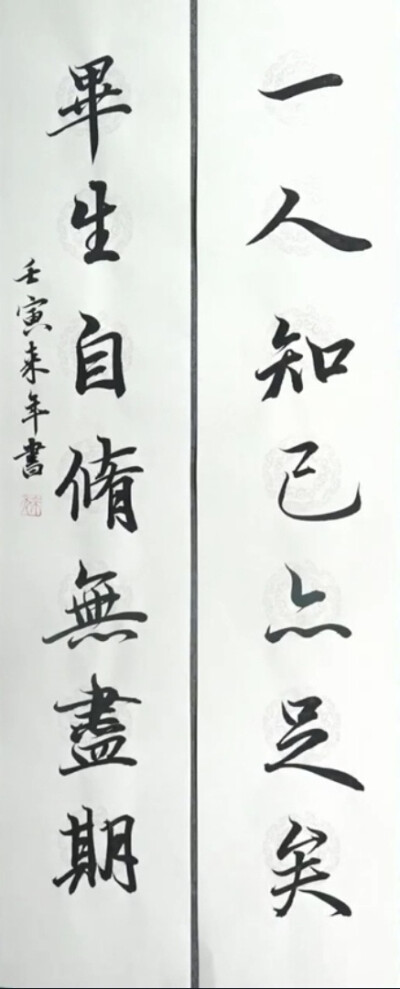 一人知己亦足矣
畢生自脩無盡期
壬寅来年書